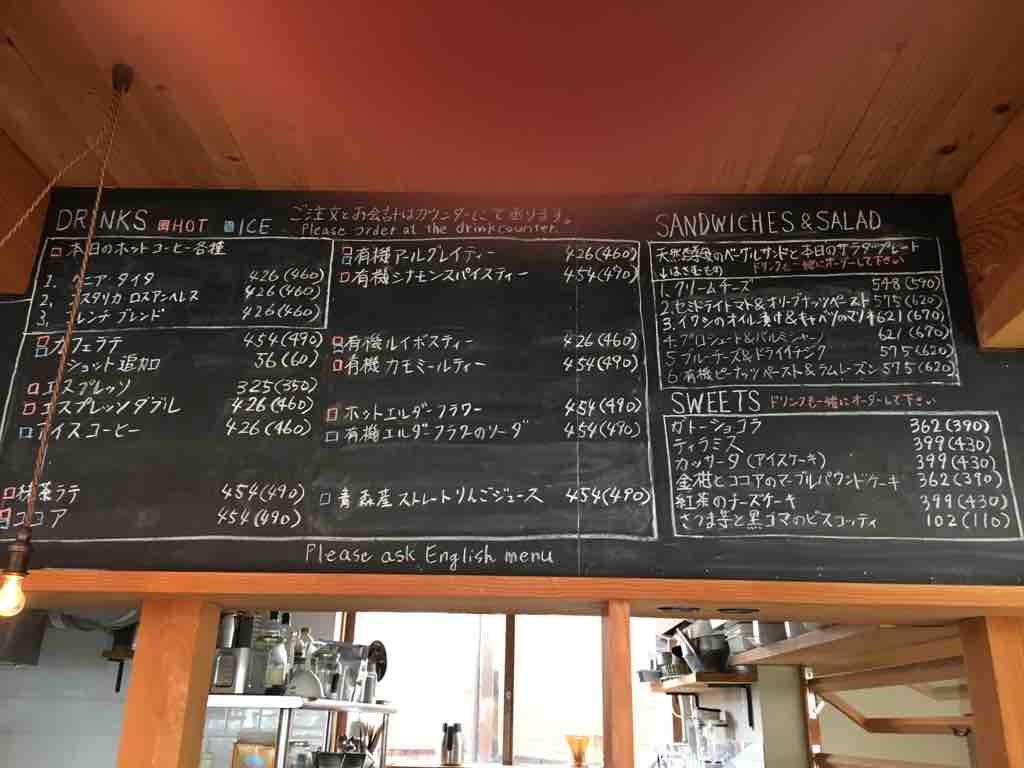 DRINKS HOT ICE
ご注文とお会計はカウンターにて承ります。
Please order at the drink counter.
本日のホットコーヒー各種
1. ニア タイタ 426(460)
2. スタリカ ロスアンヘレス 426(460)
3. フレンチ ブレンド 426(460)
カフェラテ 454(490)
ショット追加 56(60)
エスプレッソ 325(350)
エスプレッソダブル 426(460)
アイスコーヒー 426(460)
抹茶ラテ 454(490)
ココア 454(490)
有機アールグレイティー 426(460)
有機シナモンスパイスティー 454(490)
有機ルイボスティー 426(460)
有機カモミールティー 454(490)
ホットエルダーフラワー 454(490)
有機エルダーフラワーのソーダ 454(490)
青森産ストレートりんごジュース 454(490)
Please ask English menu
SANDWICHES & SALAD
天然酵母のベーグルサンドと本日のサラダプレート
↓はさむもの ドリンクも一緒にオーダーして下さい
1. クリームチーズ 548(590)
2. セミドライトマト&オリーブナッツペースト 575(620)
3. イワシのオイル漬け&キャベツのマリネ 621(670)
4. プロシュート&パルミジャーノ 621(670)
5. ブルーチーズ&ドライイチジク 575(620)
6. 有機ピーナッツペースト&ラムレーズン 575(620)
SWEETS ドリンクも一緒にオーダーして下さい
ガトーショコラ 362(390)
ティラミス 399(430)
カッサータ(アイスケーキ) 399(430)
金柑とココアのマーブルパウンドケーキ 362(390)
紅茶のチーズケーキ 399(430)
さつま芋と黒ゴマのビスコッティ 102(110)